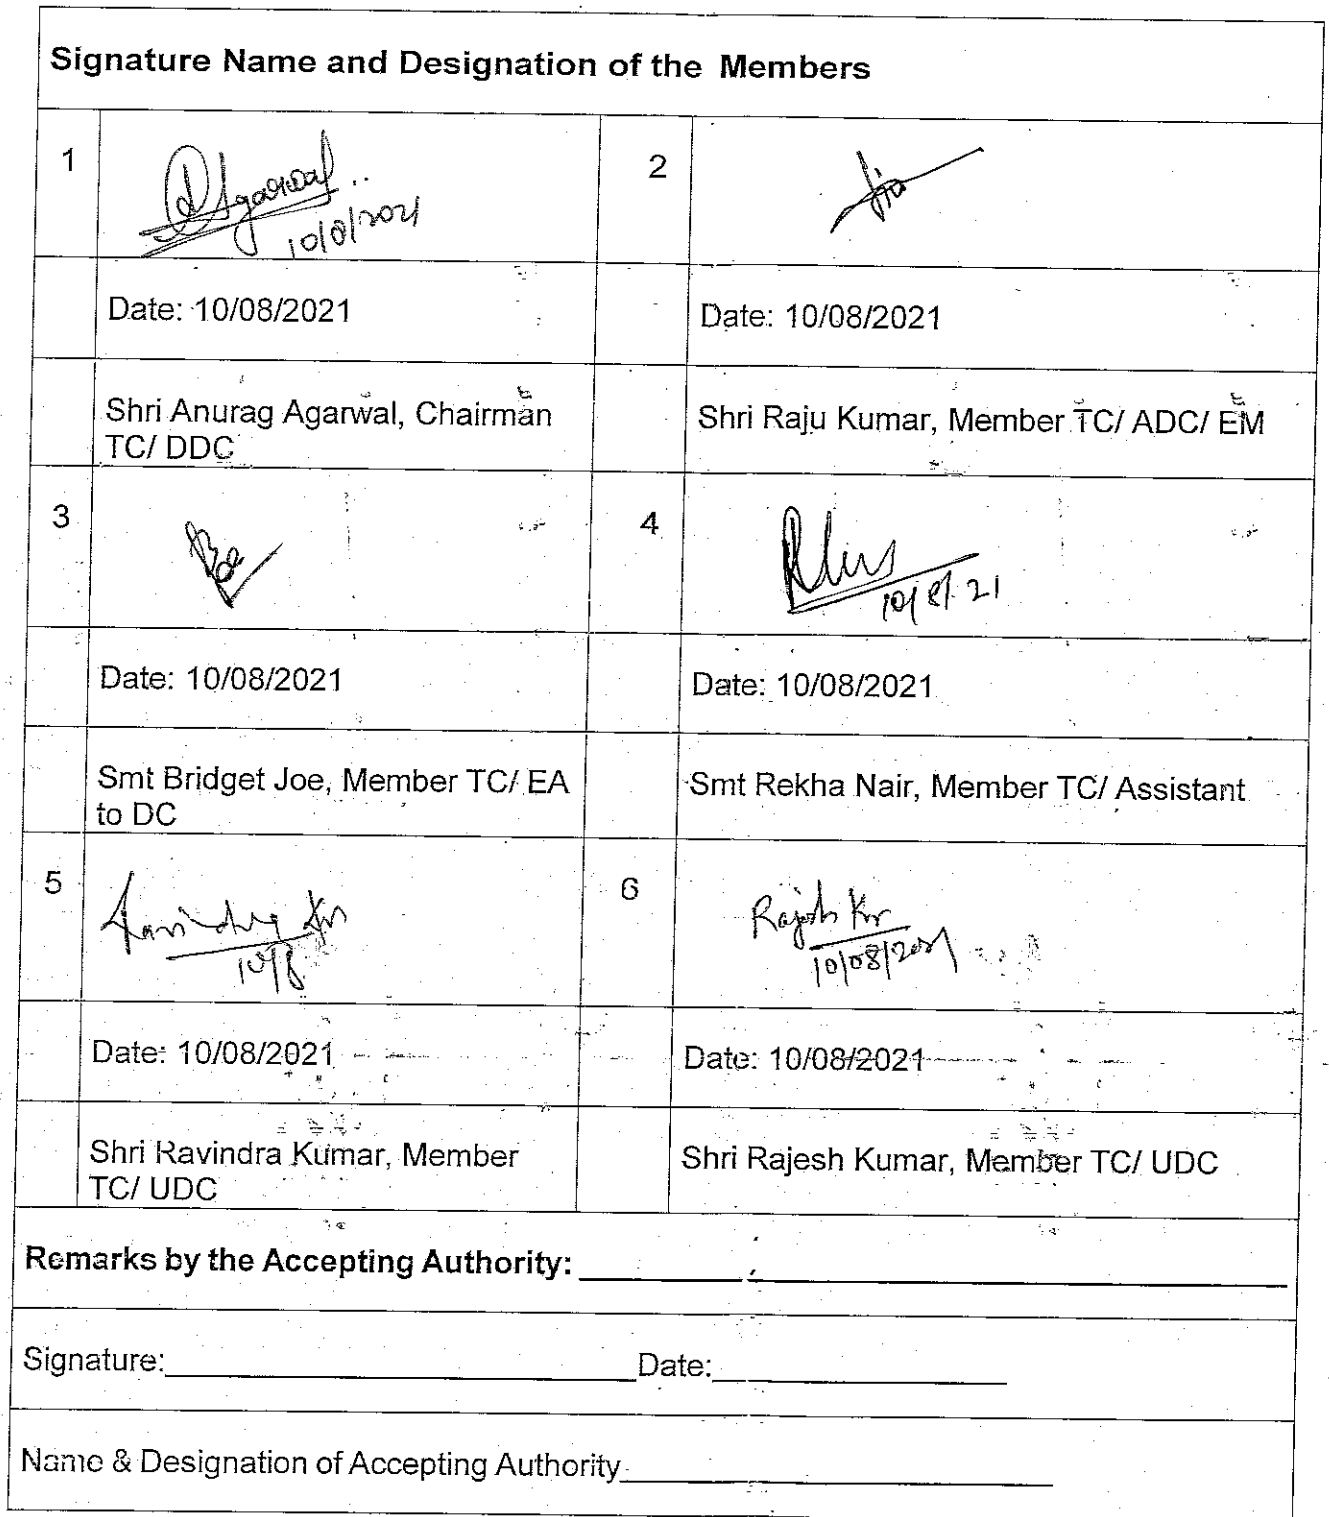 Signature Name and Designation of the Members
1
2
Agarwal
10/8/2021
Date: 10/08/2021
Date: 10/08/2021
Shri Anurag Agarwal, Chairman
TC/ DDC
Shri Raju Kumar, Member TC/ ADC/ EM
3
4
10/8/21
Date: 10/08/2021
Date: 10/08/2021
Smt Bridget Joe, Member TC/ EA
to DC
Smt Rekha Nair, Member TC/ Assistant
5
6
Ravindra Kr
10/8
Rajesh Kr
10/08/2021
Date: 10/08/2021
Date: 10/08/2021
Shri Ravindra Kumar, Member
TC/ UDC
Shri Rajesh Kumar, Member TC/ UDC
Remarks by the Accepting Authority:
Signature: Date:
Name & Designation of Accepting Authority